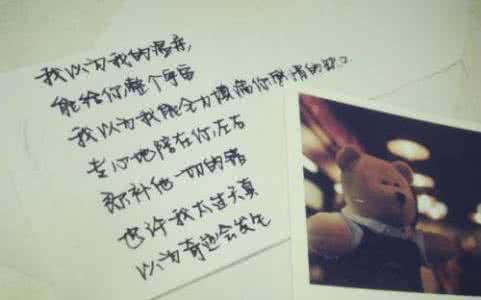 我以为我的温柔,
能给你整个宇宙
我以为我能全力填满你感情的缺口
专心地陪在你左右
弥补他一切的错
也许我太过天真
以为奇迹会发生